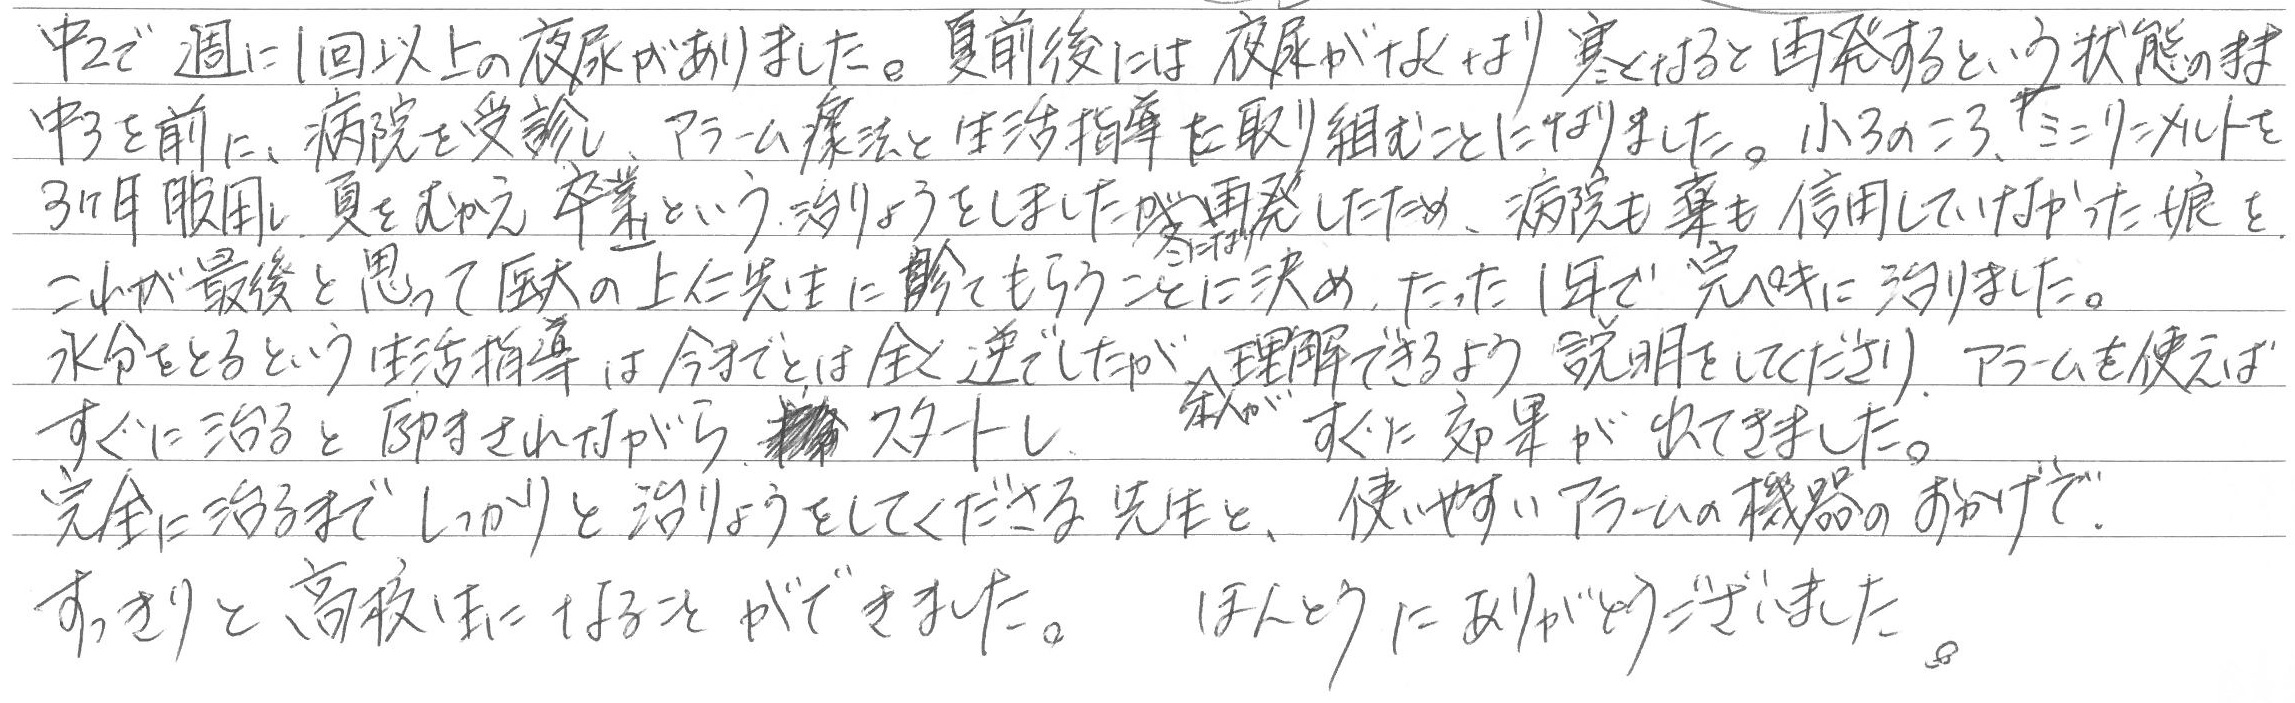 中2で 週に1回以上の夜尿がありました。夏前後には 夜尿がなくなり 寒くなると 再発するという状態のまま
中3を前に、病院を受診し、アラーム療法と 生活指導を取り組むことになりました。小3のころ、ミニリンメルトを
3ヶ月服用し、夏をむかえ 卒業という 治りょうをしましたが冬になり再発したため、病院も薬も 信用していなかった娘を、
これが最後と思って医大の上仁先生に診てもらうことに決め、たった1年で 完ペキに治りました。
水分をとるという生活指導は今までとは全く逆でしたが 本人が理解できるよう 説明をしてくださり、アラームを使えば
すぐに治ると 励まされながら スタートし、すぐに効果が出てきました。
完全に治るまで しっかりと治りょうをしてくださる先生と、使いやすいアラームの機器のおかげで、
すっきりと高校生になることができました。 ほんとうにありがとうございました。